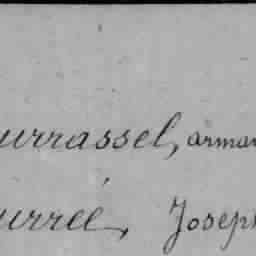 urrassel, arman
urrée, Joseph